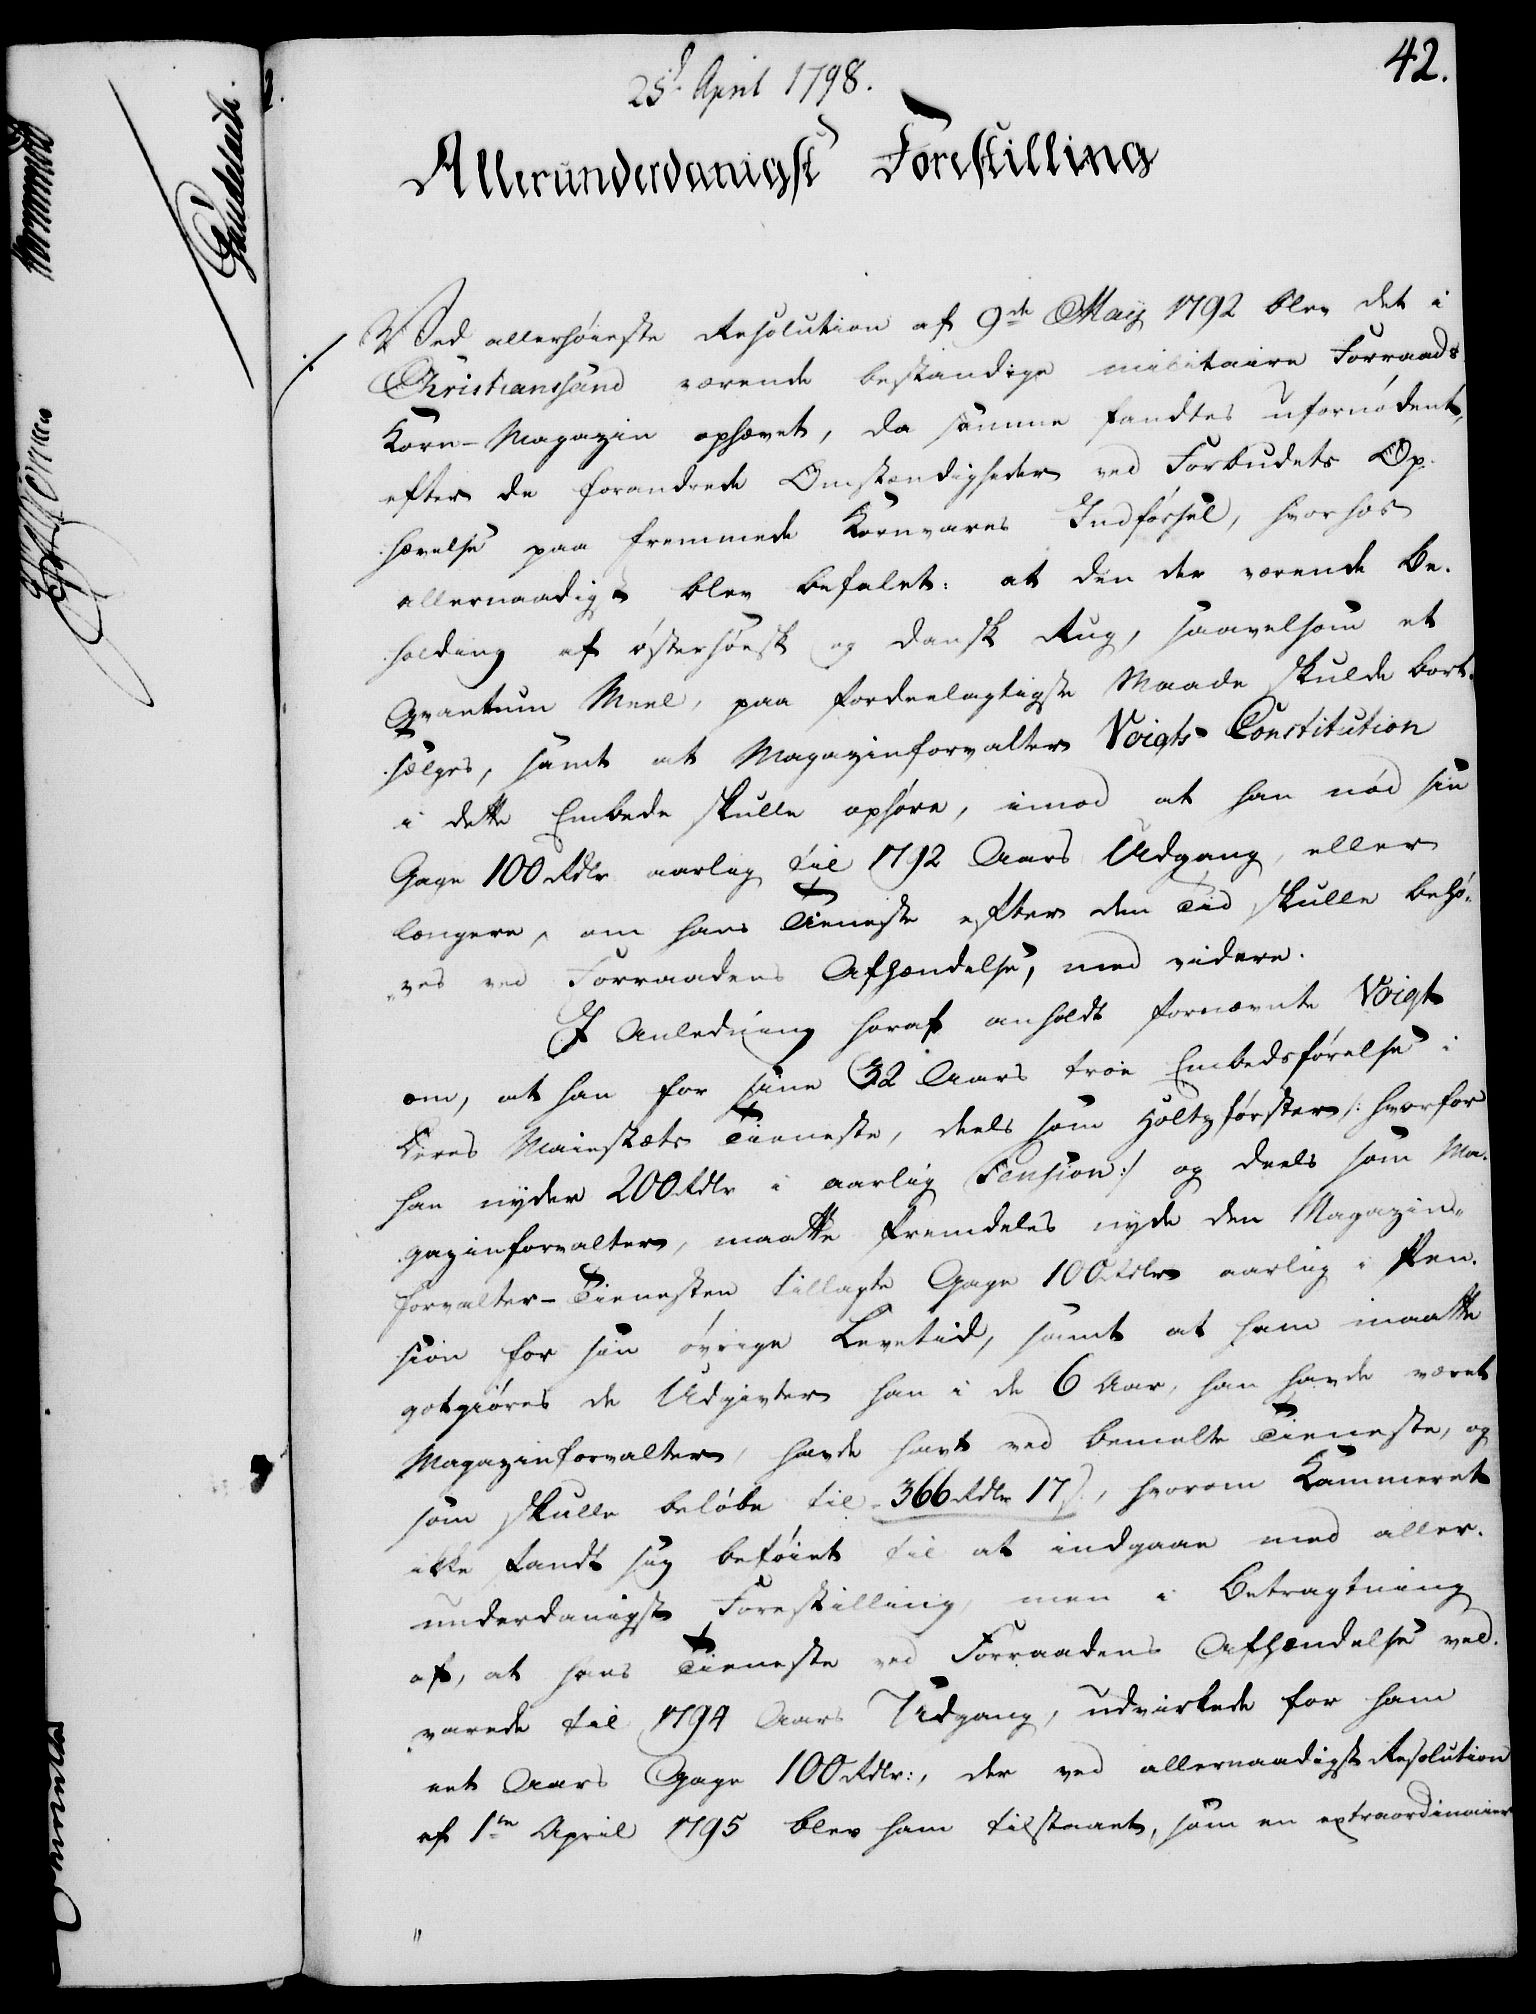 42.
25d April 1798.
Allerunderdanigst Forestilling
Ved allerhøieste Resolution af 9de Maij 1792 blev det i
Christianssand værende bestandige militaire Forraads
Korn-Magazin ophævet, da samme fandtes ufornødent,
efter de forandrede Omstændigheder ved Forbudets Op-
hævelse paa fremmede Kornvares Indførsel, hvorhos
allernaadigst blev befalet: at den der værende Be-
holding af østersøisk og dansk Rug, saavelsom et
Qvantum Meel, paa fordeelagtigste Maade skulde bort-
sælges, samt at Magazinforvalter Voigts Constitution
i dette Embede skulle ophøre, imod at han nød sin
Gage 100 Rdlr aarlig til 1792 Aars Udgang, eller
længere, om hans Tieneste efter den Tid skulle behø-
ves ved Forraadens Afhændelse, med videre.
I Anledning heraf anholdt fornævnte Voigt
om, at han for sine 32 Aars troe Embedsførelse i
Deres Maiestæts Tieneste, deels som Holtzførster /: hvorfor
han nyder 200 Rdlr i aarlig Pension :/ og deels som Ma-
gazinforvalter, maatte fremdeles nyde den Magazin-
forvalter-Tienesten tillagte Gage 100 Rdlr aarlig i Pen-
sion for sin øvrige Levetid, samt at ham maatte
gotgiøres de Udgivter han i de 6 Aar, han havde været
Magazinforvalter, havde havt ved bemelte Tieneste, og
som skulle beløbe til 366 Rdlr 17 s., hvorom Kammeret
ikke fandt sig beføiet til at indgaae med aller-
underdanigst Forestilling, men i Betragtning
af, at hans Tieneste ved Forraadens Afhændelse ved-
varede til 1794 Aars Udgang, udvirkede for ham
eet Aars Gage 100 Rdlr:, der ved allernaadigst Resolution
af 1te April 1795 blev ham tilstaaet, som en extraordinaire